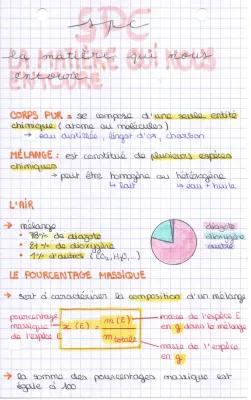 SPC
spc
LA MATIÈRE QUI NOUS ENTOURE
la matière qui nous
entoure
CORPS PUR = se compose d'une seule entité
chimique (atome ou molécules)
→ eau distillée, lingot d'or, charbon
MÉLANGE : est constitué de plusieurs espèces
chimiques
→ peut être homogène ou hétérogène
↳ lait ↳ eau + huile
L'AIR
→ mélange
• 78% de diazote
• 21% de dioxygène
• 1% d'autres (CO₂, H₂O,...)
diazote
dioxygène
autre
LE POURCENTAGE MASSIQUE
→ sert à caractériser la composition d'un mélange
pourcentage
massique
de l'espèce E
x (E) = m (E) / m totale
masse de l'espèce E
en g dans le mélange
masse de l'espèce
en g
→ la somme des pourcentages massique est
égale à 100